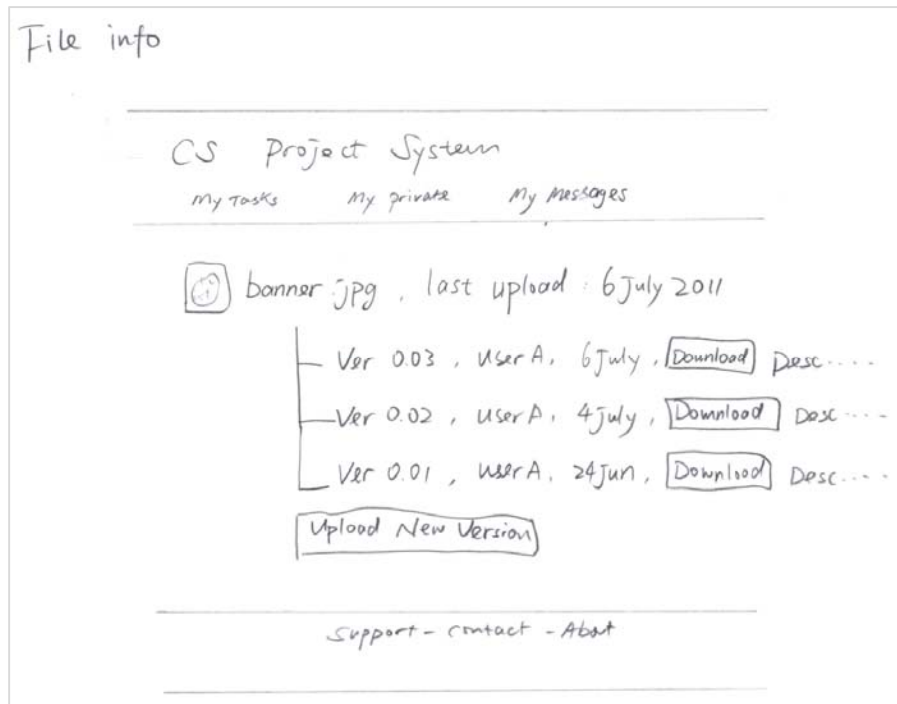 File info
CS Project System
My Tasks My private My Messages
banner.jpg , last upload : 6 July 2011
Ver 0.03 , User A, 6 July , Download Desc.....
Ver 0.02 , User A, 4 July , Download Desc.....
Ver 0.01 , User A, 24 Jun , Download Desc.....
Upload New Version
Support - Contact - About